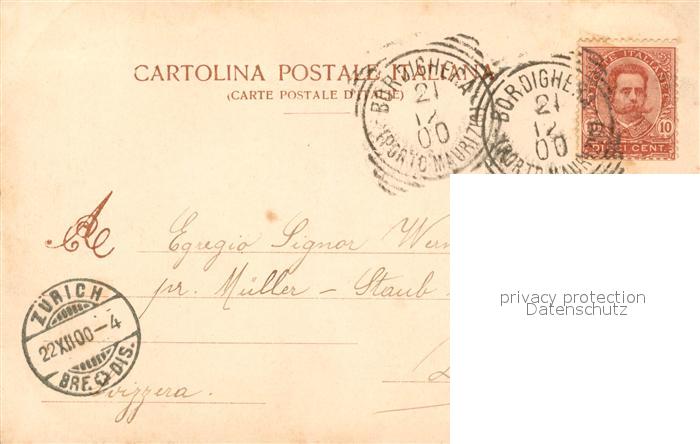 CARTOLINA POSTALE ITALIANA
(CARTE POSTALE D'ITALIE)
BORDIGHERA
21
12
00
(PORTO MAURIZIO)
BORDIGHERA
21
12
00
(PORTO MAURIZIO)
10
DIECI CENT.
Egregio Signor Wern
pr. Müller - Staub
Svizzera.
ZÜRICH
22 XII 00 - 4
BRF. DIS.
privacy protection
Datenschutz